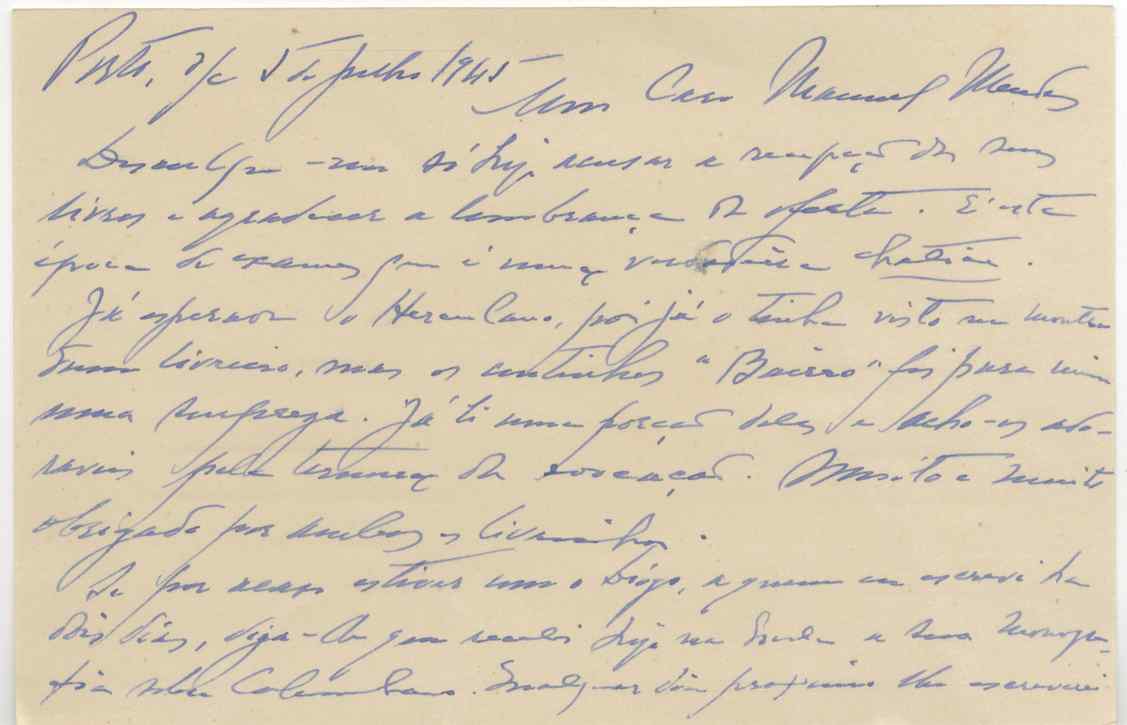 Porto, 5 de Julho 1945
Meu Caro Manuel Mendes
Desculpe-me só hoje acusar a recepção dos seus
livros e agradecer a lembrança da oferta. É esta
época de exames que é numa verdadeira chatice.
Já esperava o Herculano, pois já o tinha visto na montra
dum livreiro, mas os continhos "Bairro" foi para mim
uma surpreza. Já li uma porção deles e acho-os ado-
raveis pela ternura da evocação. Muito e muito
obrigado por ambos os livrinhos.
Se por acaso estiver com o Diogo, a quem eu escrevi ha
dois dias, diga-lhe que recebi hoje na Escola a sua monogra-
fia sobre Columbano. Qualquer dia proximo lhe escreverei